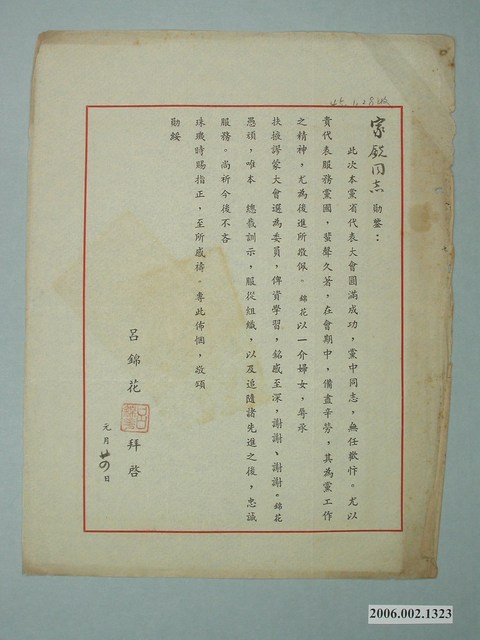 45.1.28
家銳同志勛鑒：
此次本黨省代表大會圓滿成功，黨中同志，無任歡忭。尤以
貴代表服務黨國，蜚聲久著，在會期中，備盡辛勞，其為黨工作
之精神，尤為後進所敬佩。錦花以一介婦女，辱承
扶掖謬蒙大會選為委員，俾資學習，銘感至深，謝謝、謝謝。錦花
愚頑，唯本　總裁訓示，服從組織，以及追隨諸先進之後，忠誠
服務。尚祈今後不吝
珠璣時賜指正，至所感禱。專此佈悃，敬頌
勛綏
呂錦花　拜啓
元月廿四日
2006.002.1323